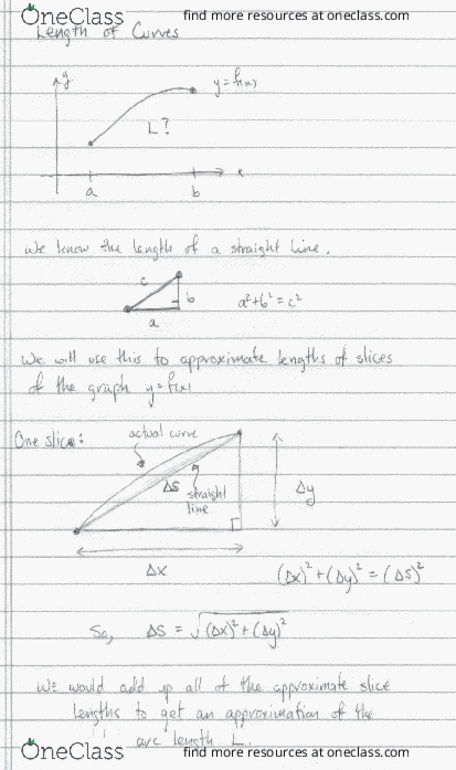 OneClass find more resources at oneclass.com
Length of Curves
y
y = f(x)
L?
x
a b
We know the length of a straight line.
c
b
a
a²+b²=c²
We will use this to approximate lengths of slices
of the graph y=f(x)
One slice:
actual curve
Δs
straight
line
Δy
Δx
(Δx)²+(Δy)²=(Δs)²
So, Δs = √(Δx)²+(Δy)²
We would add up all of the approximate slice
lengths to get an approximation of the
arc length L.
OneClass find more resources at oneclass.com